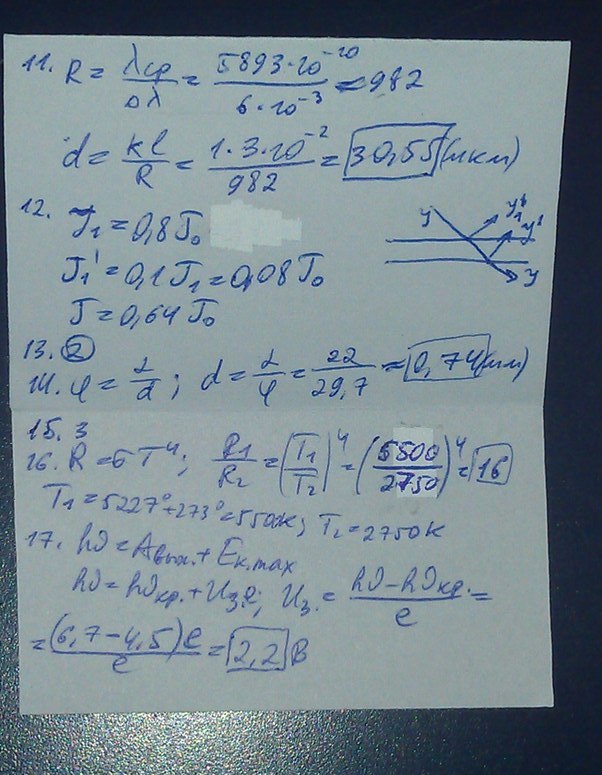 11. R = λср/Δλ = 5893·10⁻¹⁰/6·10⁻³ = 982
d = kl/R = 1·3·10⁻²/982 = 30,55 (мкм)
12. J₁ = 0,8 J₀
J₁' = 0,1 J₁ = 0,08 J₀
J = 0,64 J₀
13. 2
14. φ = λ/d; d = λ/φ = 22/29,7 = 0,74 (мм)
15. 3
16. R = σT⁴; R₁/R₂ = (T₁/T₂)⁴ = (5500/2750)⁴ = 16
T₁ = 5227° + 273° = 5500К; T₂ = 2750К
17. hν = Aвых. + Eк.max
hν = hνкр. + Uз.e; Uз. = hν – hνкр./e =
= (6,7 – 4,5)e/e = 2,2 В